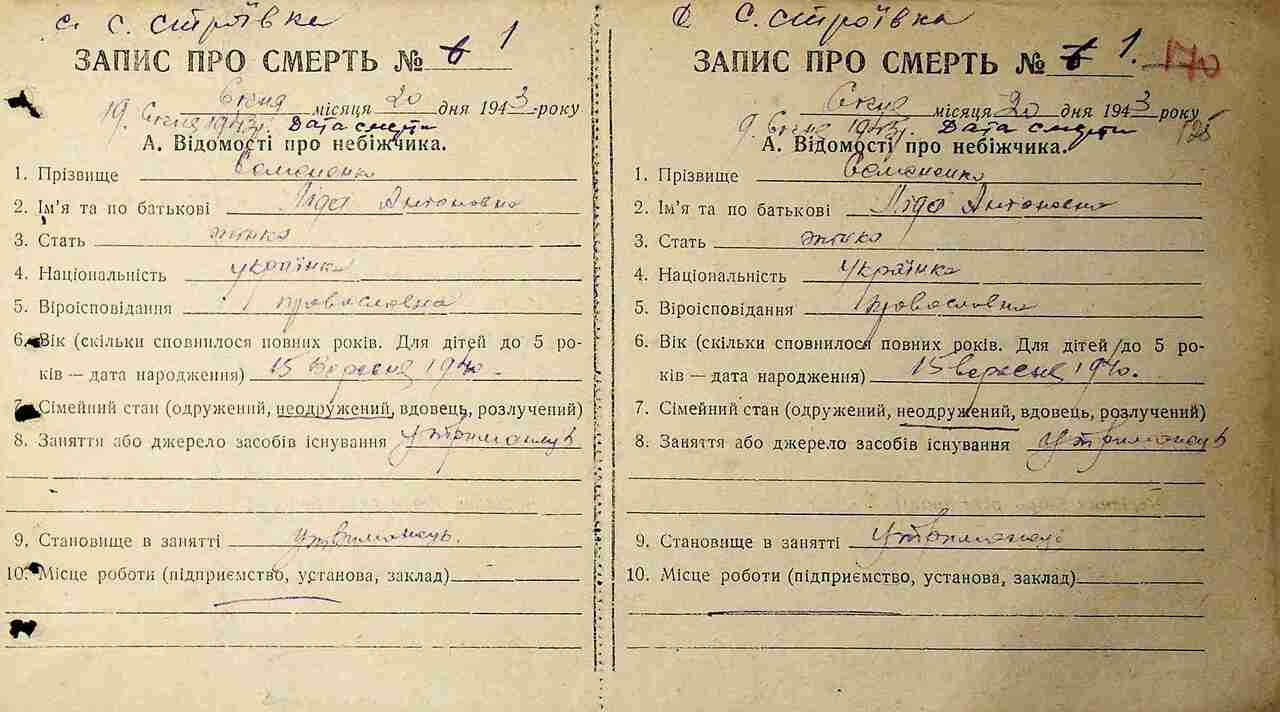 с. Строївка
ЗАПИС ПРО СМЕРТЬ № 6 1
Січня місяця 20 дня 1943 року
19. Січня 1943 р. Дата смерти
А. Відомості про небіжчика.
1. Прізвище
2. Ім'я та по батькові Ліда Антоновна
3. Стать жінка
4. Національність українка
5. Віроісповідання православна
6. Вік (скільки сповнилося повних років. Для дітей до 5 ро-
ків — дата народження) 15 Вересня 1940.
7. Сімейний стан (одружений, неодружений, вдовець, розлучений)
8. Заняття або джерело засобів існування утриманець
9. Становище в занятті утриманець.
10. Місце роботи (підприємство, установа, заклад)
С. Строївка
ЗАПИС ПРО СМЕРТЬ № 6 1. 170
Січня місяця 20 дня 1943 року
9. Січня 1943 р. Дата смерти
А. Відомості про небіжчика.
1. Прізвище
2. Ім'я та по батькові Ліда Антоновна
3. Стать жінка
4. Національність Українка
5. Віроісповідання православна
6. Вік (скільки сповнилося повних років. Для дітей до 5 ро-
ків — дата народження) 15 вересня 1940.
7. Сімейний стан (одружений, неодружений, вдовець, розлучений)
8. Заняття або джерело засобів існування утриманець
9. Становище в занятті утриманець
10. Місце роботи (підприємство, установа, заклад)